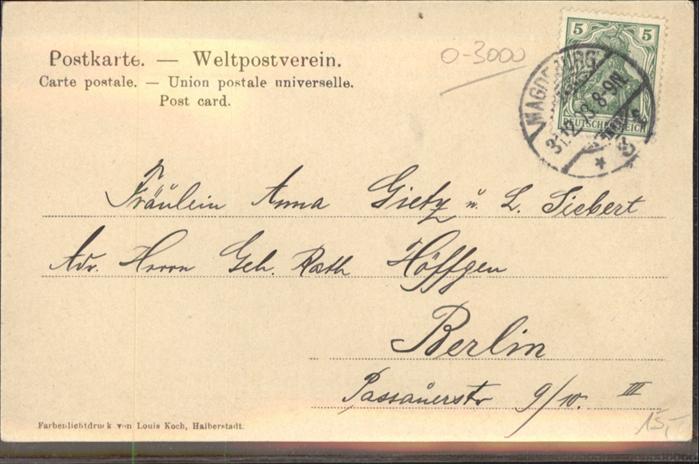 Postkarte. — Weltpostverein.
Carte postale. — Union postale universelle.
Post card.
0-3000
5 5
DEUTSCHES REICH
MAGDEBURG
31.12.03. 8-9N.
Fräulein Anna Gietz u. L. Siebert
Adr. Herrn Geh. Rath Höffgen
Berlin
Passauerstr 9/10. III
15,-
Farbenlichtdruck von Louis Koch, Halberstadt.